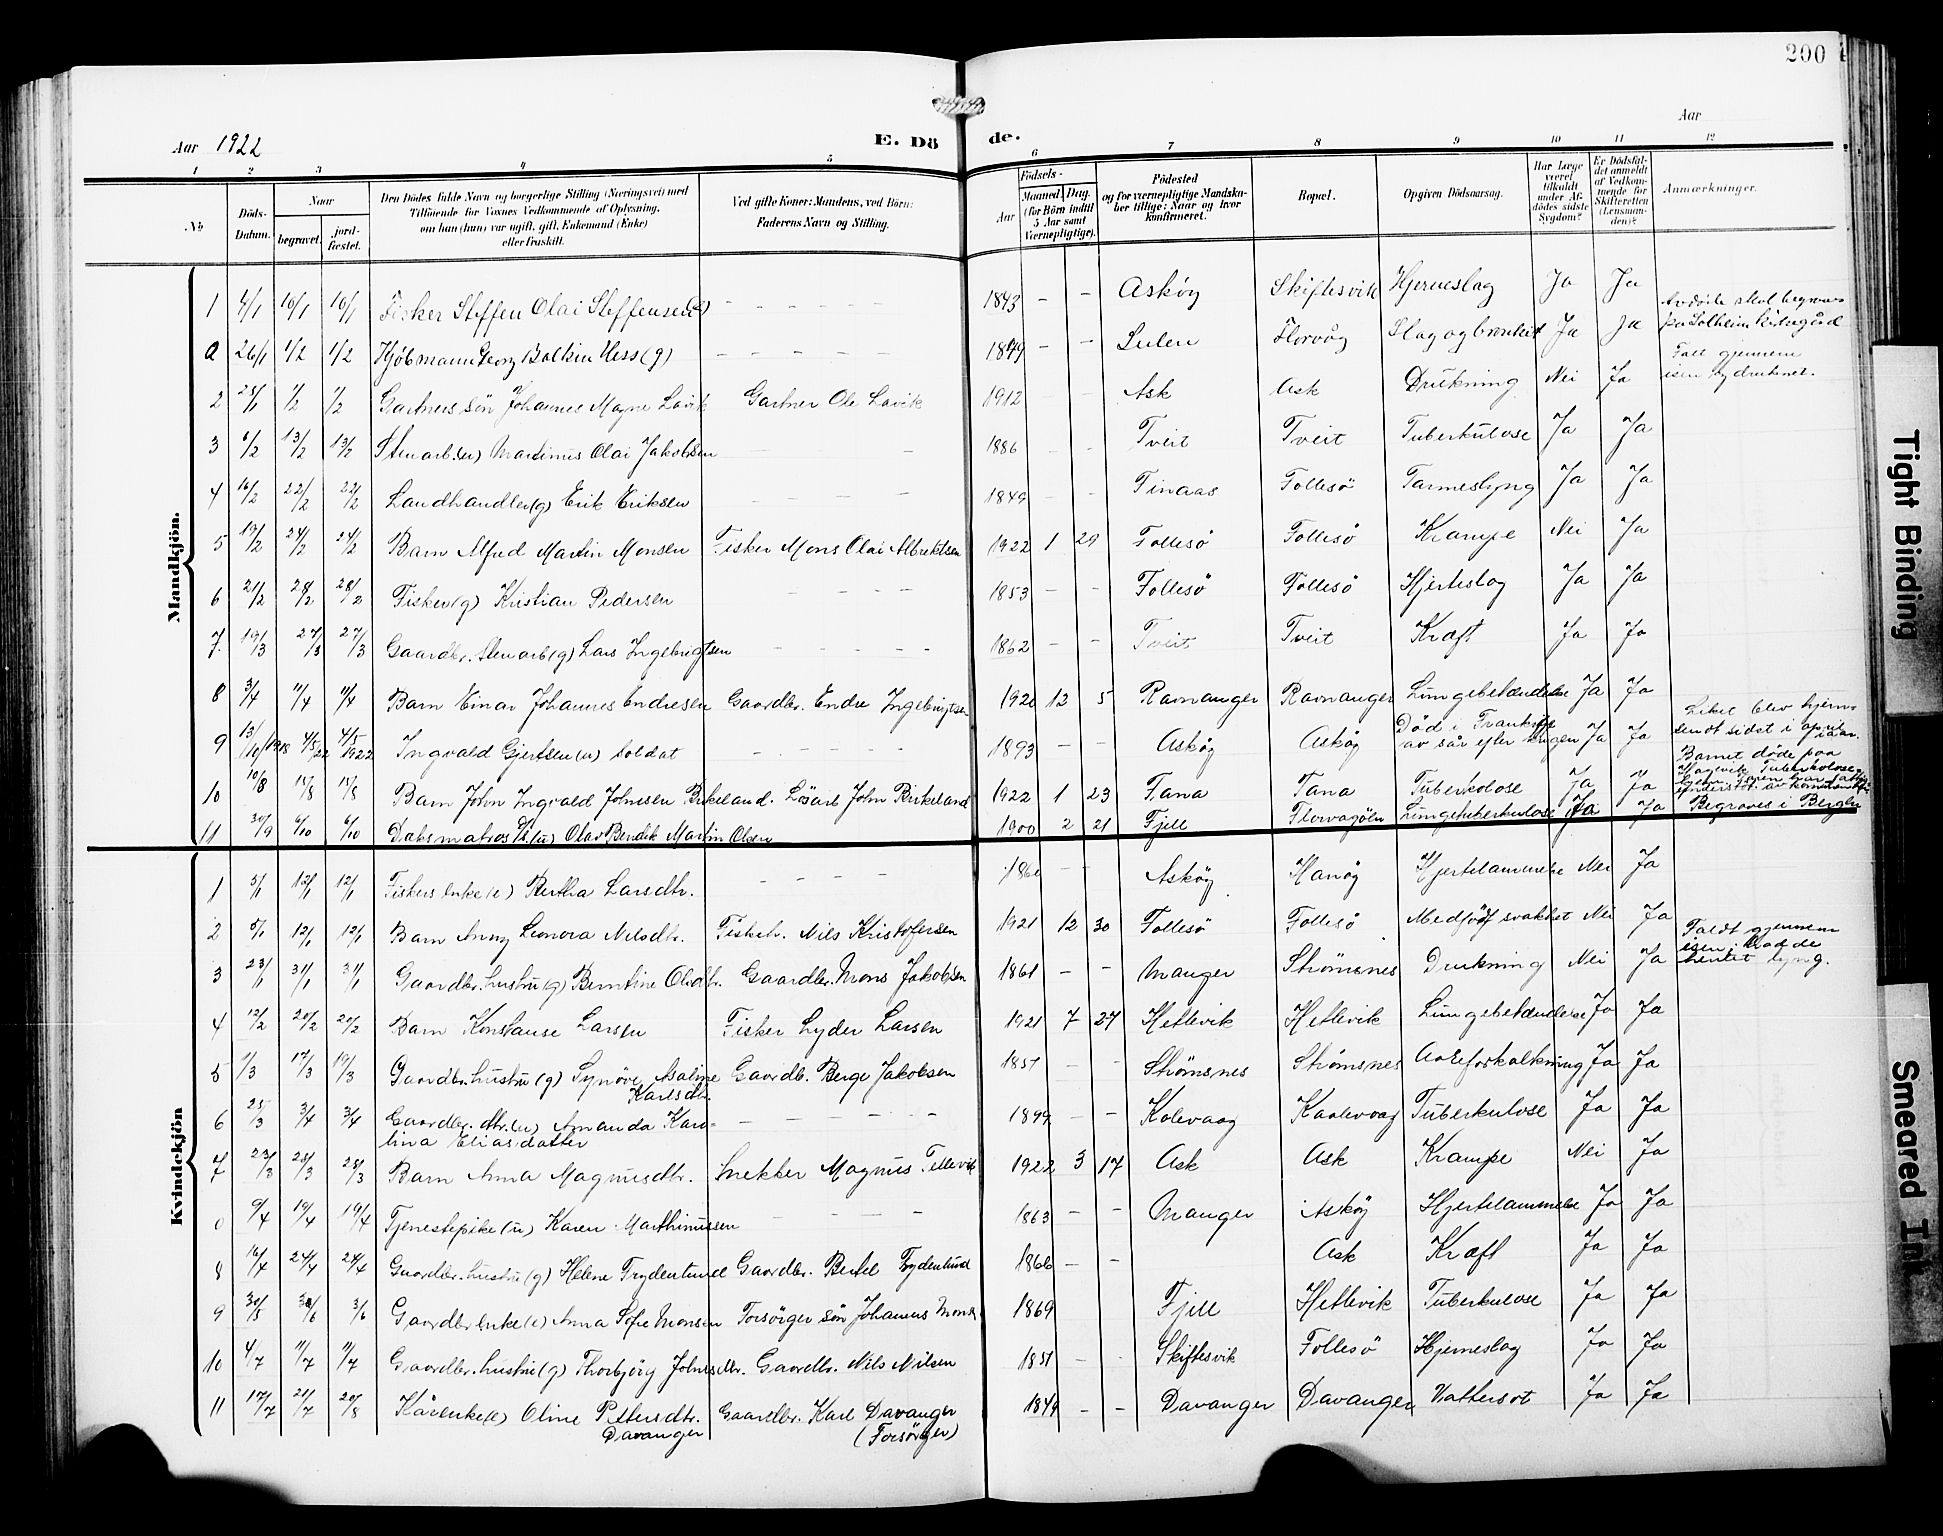 200
Aar 1922
E. Dö de.
Aar
1 2 3 4 5 6 7 8 9 10 11 12
No
Döds-Datum.
Naar
begravet.
jord-fæstet.
Den Dödes fulde Navn og borgerlige Stilling (Næringsvei) med
Tilföiende for Voxnes Vedkommende af Oplysning,
om han (hun) var ugift, gift, Enkemand (Enke)
eller fraskilt.
Ved gifte Koner: Mandens, ved Börn:
Faderens Navn og Stilling.
Födsels-
Aar
Maaned. Dag.
(for Börn indtil
5 Aar samt
Værnepligtige).
Födested
og for værnepligtige Mandska-
ber tillige: Naar og hvor
konfirmeret.
Bopæl.
Opgiven Dödsaarsag.
Har Læge
været
tilkaldt
under Af-
dödes sidste
Sygdom?
Er Dödsfal-
det anmeldt
af Vedkom-
mende for
Skifteretten
(Lensman-
den)?
Anmærkninger.
Mandkjön.
1 4/1 10/1 10/1 Fisker Steffen Olai Steffensen - - 1843 - - Askøy Skiftesvik Hjerneslag Ja Ja
a 26/1 1/2 1/2 Kjöbmann Georg Balkin Hess (g) - - 1849 - - Sulen Florvåg Slag og bronkit Ja Ja
på Solheim Kirkegård
2 1/2 1/2 Gartners sön Johannes Magne Lavik Gartner Ole Lavik 1912 Ask Ask Drukning Nei Ja Fall gjennem
isen og druknet.
3 6/2 13/2 13/2 Stenarb. (u) Martinus Olai Jakobsen - - 1886 Tveit Tveit Tuberkulose Ja Ja
4 16/2 22/2 22/2 Landhandler (g) Erik Eriksen - - 1849 - - Finaas Follesö Tarmeslyng Ja Ja
5 19/2 24/2 24/2 Barn Alfred Martin Monsen Fisker Mons Olai Albrektsen 1922 1 29 Follesö Follesö Krampe Nei Ja
6 21/2 28/2 28/2 Fisker (g) Kristian Pedersen - - 1853 - - Follesö Follesö Hjerteslag Ja Ja
7. 19/3 27/3 27/3 Gaardbr. Stenarb (g) Lars Ingebrigtsen - - 1862 - - Tveit Tveit Kræft Ja Ja
8 3/4 11/4 11/4 Barn Einar Johannes Endresen Gaardbr. Endre Ingebrigtsen 1920 12 5 Ravnanger Ravnanger Lungebetændelse Ja Ja
9 13/10 1918 4/5 22 4/5 1922 Ingvald Gjertsen (u) soldat - - 1893 Askøy Askøy Död i Frankrige
av sår efter krigen Ja Ja Liket blev hjem-
sendt sidst i april
10 10/8 15/8 15/8 Barn John Ingvald Johnsen Birkeland. Lösarb John Birkeland 1922 1 23 Fana Fana Tuberkolose Ja Ja Barnet döde paa
11 30/9 6/10 6/10 Daksmatros (u) Olav Bendik Martin Olsen 1900 2 21 Fjell Florvagöen Lungetuberkulose Ja Ja Begraves i Bergen
Kvindekjön
1 5/1 12/1 12/1 Fiskers enke (e) Bertha Larsdtr. - - - - Askøy Hanöy Hjertelammelse Nei Ja
2 5/1 12/1 12/1 Barn Anny Leonora Nilsdtr. Nils Kristofersen 1921 12 30 Follesö Follesö Medfödt svakhet Nei Ja
3 23/1 31/1 31/1 Gaardbr. hustru (g) Berntine Olsdtr. Gaardbr. Mons Jakobsen 1861 - - Manger Strömsnes Drukning Nei Ja Faldt gjennem
isen; hadde
hentet lyng.
4 12/2 20/2 20/2 Barn Konstanse Larsen Fisker Lyder Larsen 1921 7 27 Hetlevik Hetlevik Lungebetændelse Ja Ja
5 17/3 19/3 Gaardbr. hustru (g) Synöve Asaline
Karlsdtr. Gaardb. Berge Jakobsen 1851 - - Strömsnes Strömsnes Ja Ja
6 25/3 3/4 3/4 Gaardbr. dtr. (u) Amanda Karo-
lina Eliasdatter - - 1899 - - Kolevaag Kaalevaag Tuberkulose Ja Ja
7 23/3 28/3 28/3 Barn Anna Magnusdtr. Snekker Magnus Tellevik 1922 3 17 Ask Ask Krampe Nei Ja
9/4 19/4 19/4 Tjenestepike (u) Karen Marthinussen - - 1863 - - Manger Askøy Hjertelammelse Ja Ja
8 16/4 24/4 24/4 Gaardbr. hustru (g) Helene Trydenlund Gaardbr. Bertel Trydenlund 1866 - - Ask Kræft Ja Ja
9 30/5 3/6 Gaardbr enke (e) Anna Sofie Monsen Forsörger sön Johannes Monsen 1869 Fjell Hetlevik Tuberkulose Ja Ja
10 4/7 11/7 11/7 Gaardbr. hustru (g) Thorbjörg Johnsdtr. Gaardbr. Nils Nilsen 1851 - - Skiftesvik Follesö Hjerneslag Ja Ja
11 17/7 21/7 20/8 Kårenke (e) Oline Pettersdtr.
Davanger Gaardbr. Karl Davanger
(Forsörger) 1849 - - Davanger Davanger Vattersot Ja Ja
Tight Binding
Smeared Ink